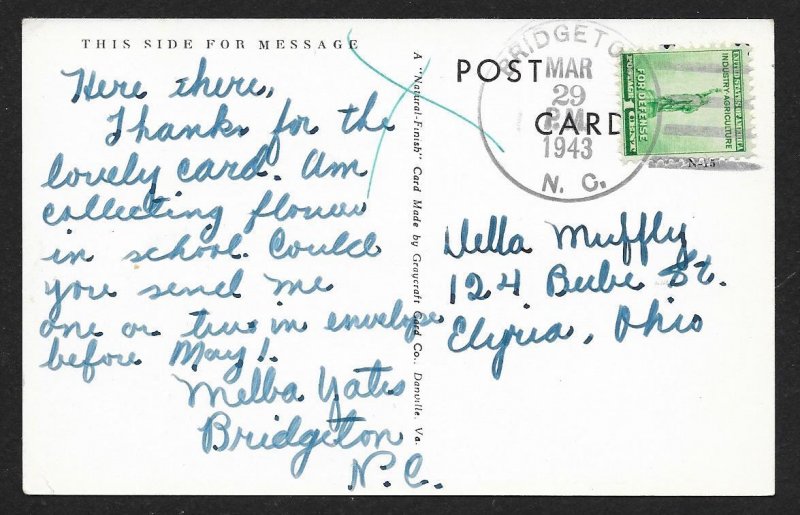 THIS SIDE FOR MESSAGE
Here there,
Thanks for the
lovely card. Am
collecting flower
in school. Could
you send me
one or two in envelope
before May 1.
Melba Yates
Bridgeton
N.C.
A "Natural-Finish" Card Made by Graycraft Card Co., Danville, Va.
POST
CARD
BRIDGETO
MAR
29
P.M.
1943
N. C.
UNITED STATES OF AMERICA
INDUSTRY AGRICULTURE
FOR DEFENSE
N-15
Della Muffly
124 Beebe St.
Elyria, Ohio